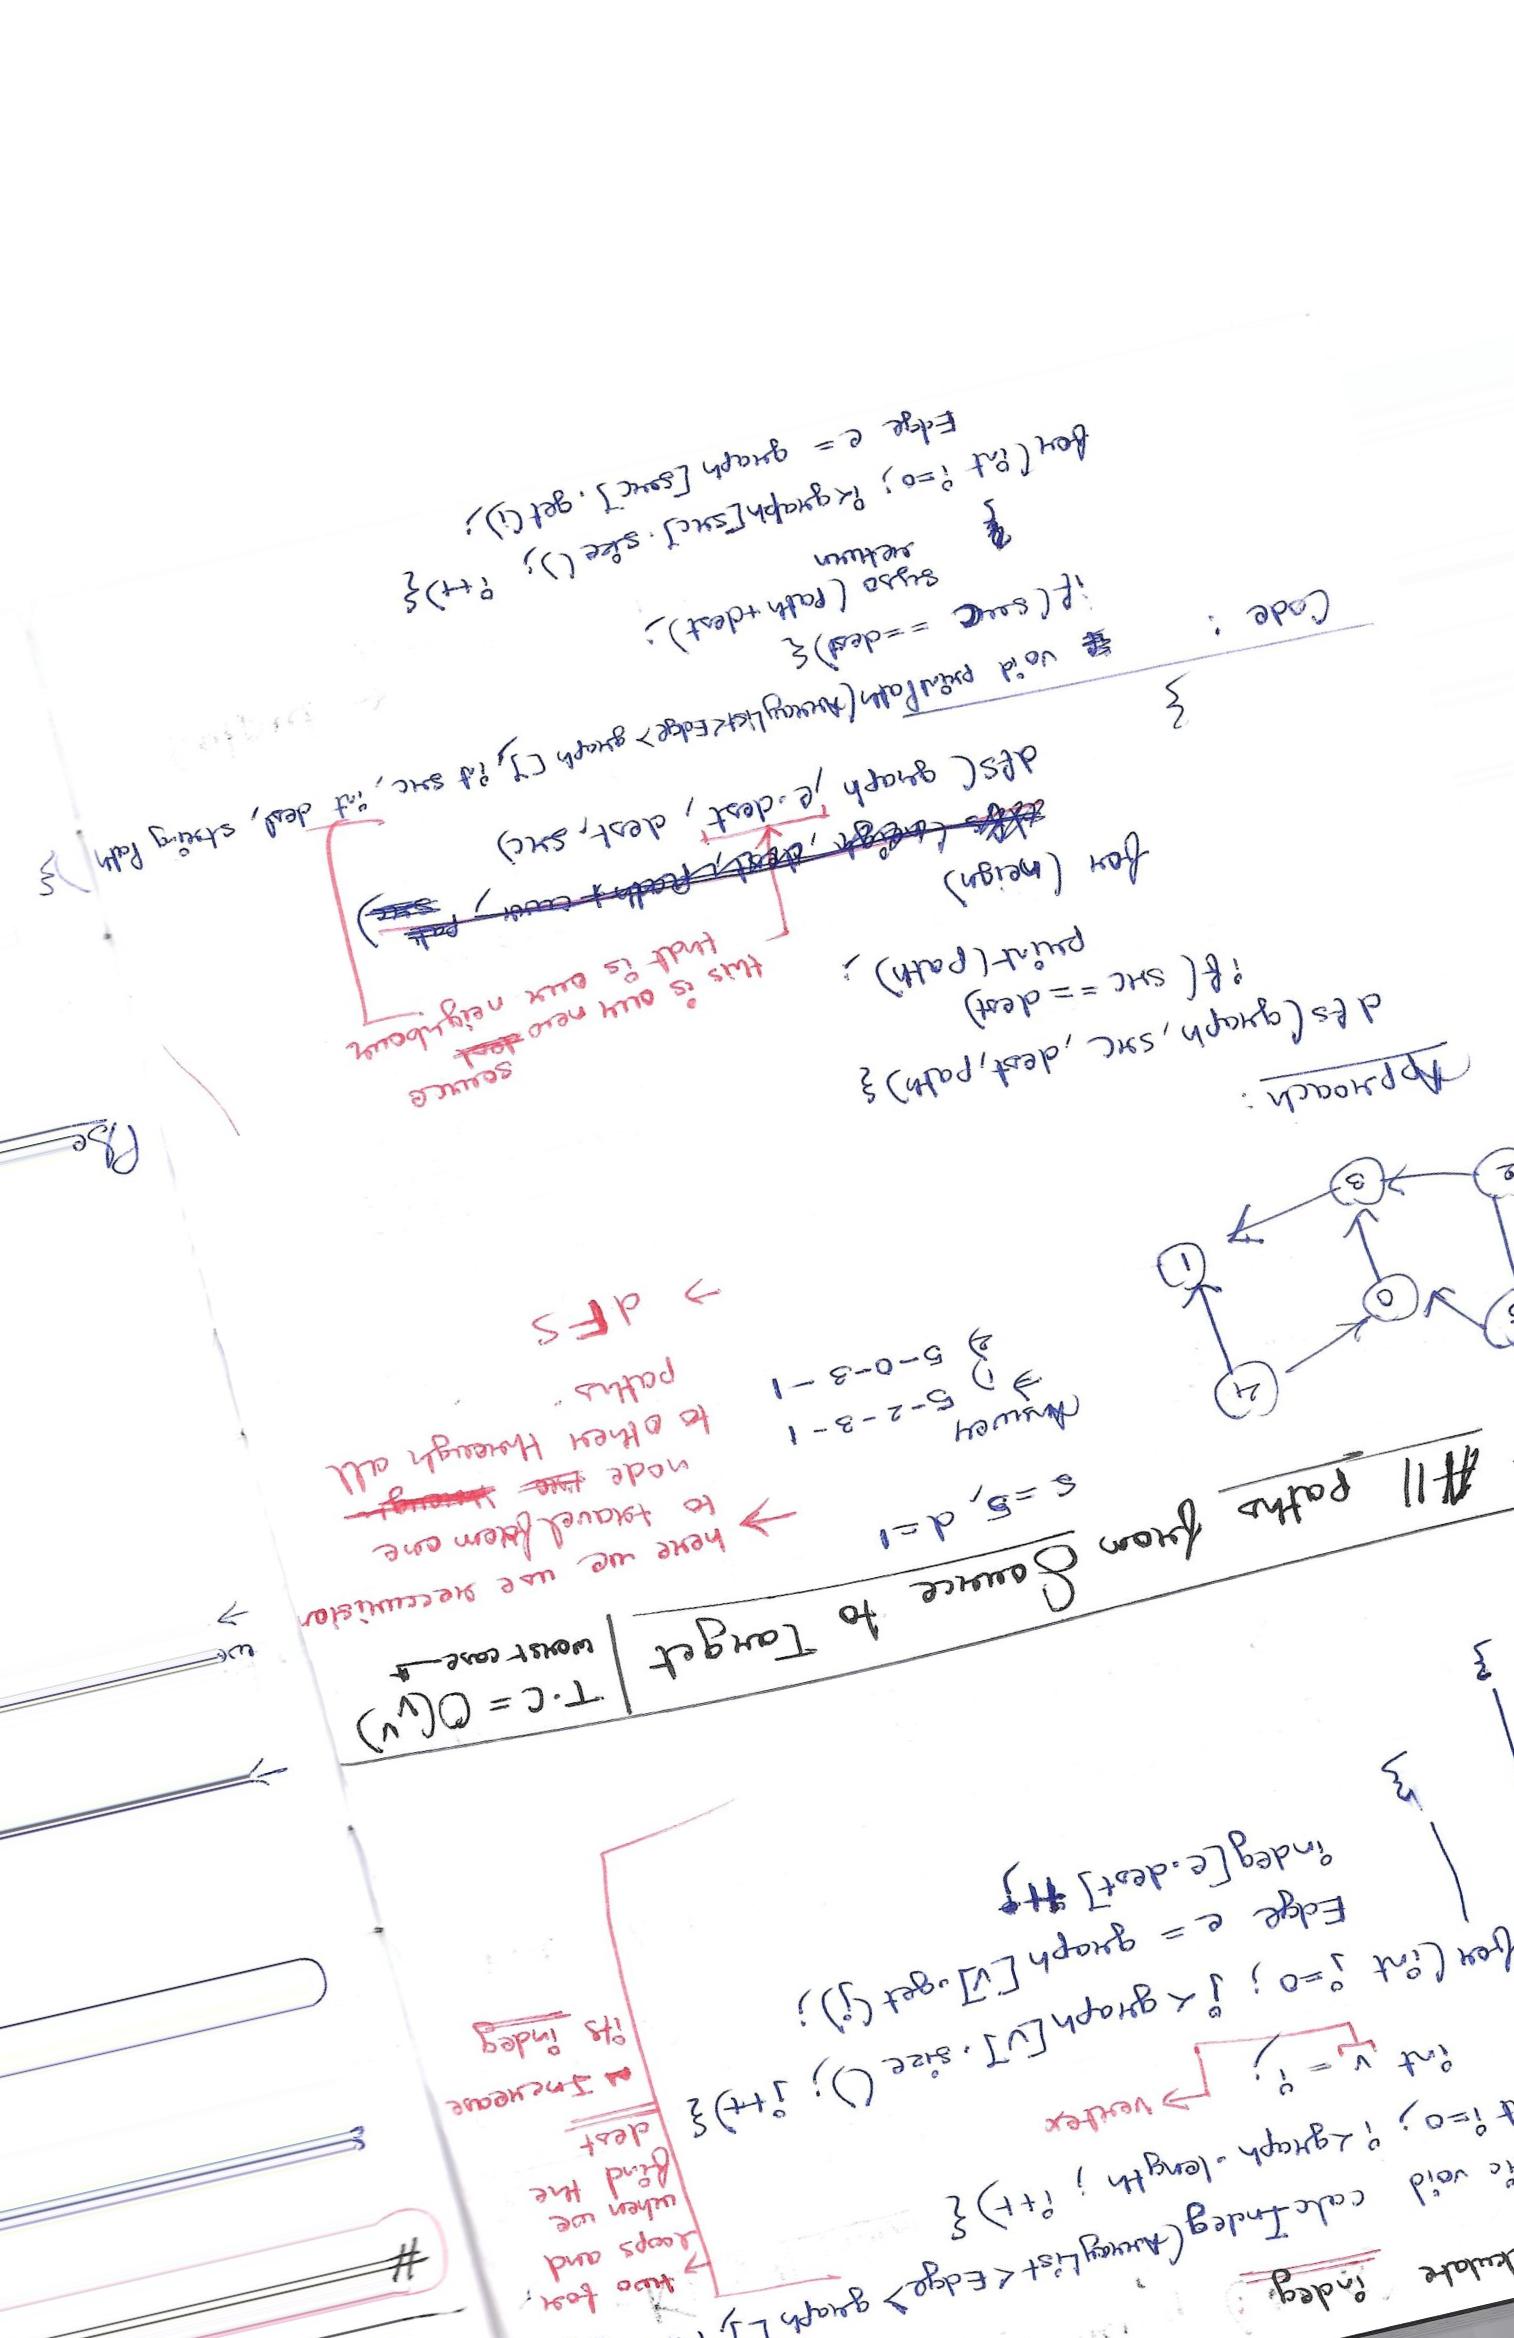 indeg
void calcIndeg(ArrayList<Edge> graph[],
i=0; i<graph.length; i++){
int v = i; → vertex
for(int j=0; j<graph[v].size(); j++){
Edge e = graph[v].get(j);
indeg[e.dest]++;
}
}
→ two for
loops and
when we
find the
dest
Increase
its indeg
All paths from Source to Target
T.C = O(V^V)
worst case
s=5, d=1
Answer
⇒ 1) 5-2-3-1
2) 5-0-3-1
→ here we use reccursion
to travel from one
node
to other through all
paths.
→ dFS
4
0
1
3
2
5
Approach:
dfs(graph, src, dest, path){
if(src == dest)
print(path);
for (neigh)
dfs(graph, e.dest, dest, src)
}
source
this is our new
that is our neighbour
Code:
void printPath(ArrayList<Edge> graph[], int src, int dest, string path){
if(src == dest){
syso(path+dest);
return
}
for(int i=0; i<graph[src].size(); i++){
Edge e = graph[src].get(i);
#
we